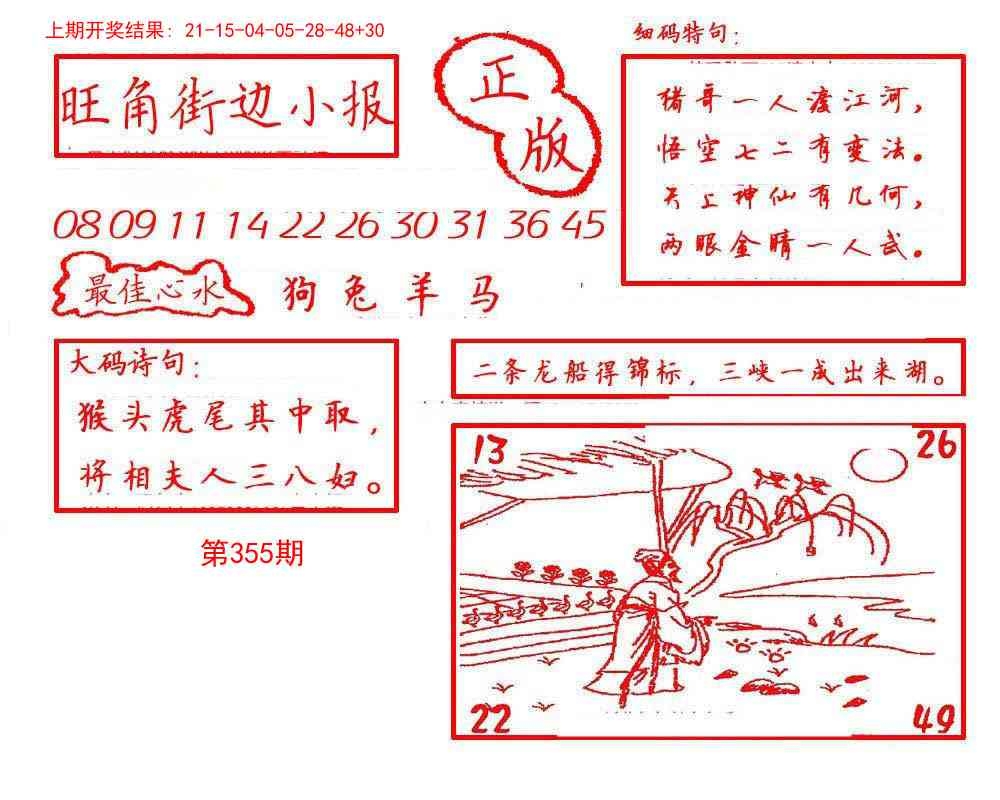 上期开奖结果：21-15-04-05-28-48+30
旺角街边小报
正
版
细码特句：
猪哥一人渡江河，
悟空七二有变法。
天上神仙有几何，
两眼金睛一人武。
08 09 11 14 22 26 30 31 36 45
最佳心水
狗兔羊马
大码诗句：
猴头虎尾其中取，
将相夫人三八妇。
二条龙船得锦标，三峡一成出来湖。
第355期
13
26
22
49